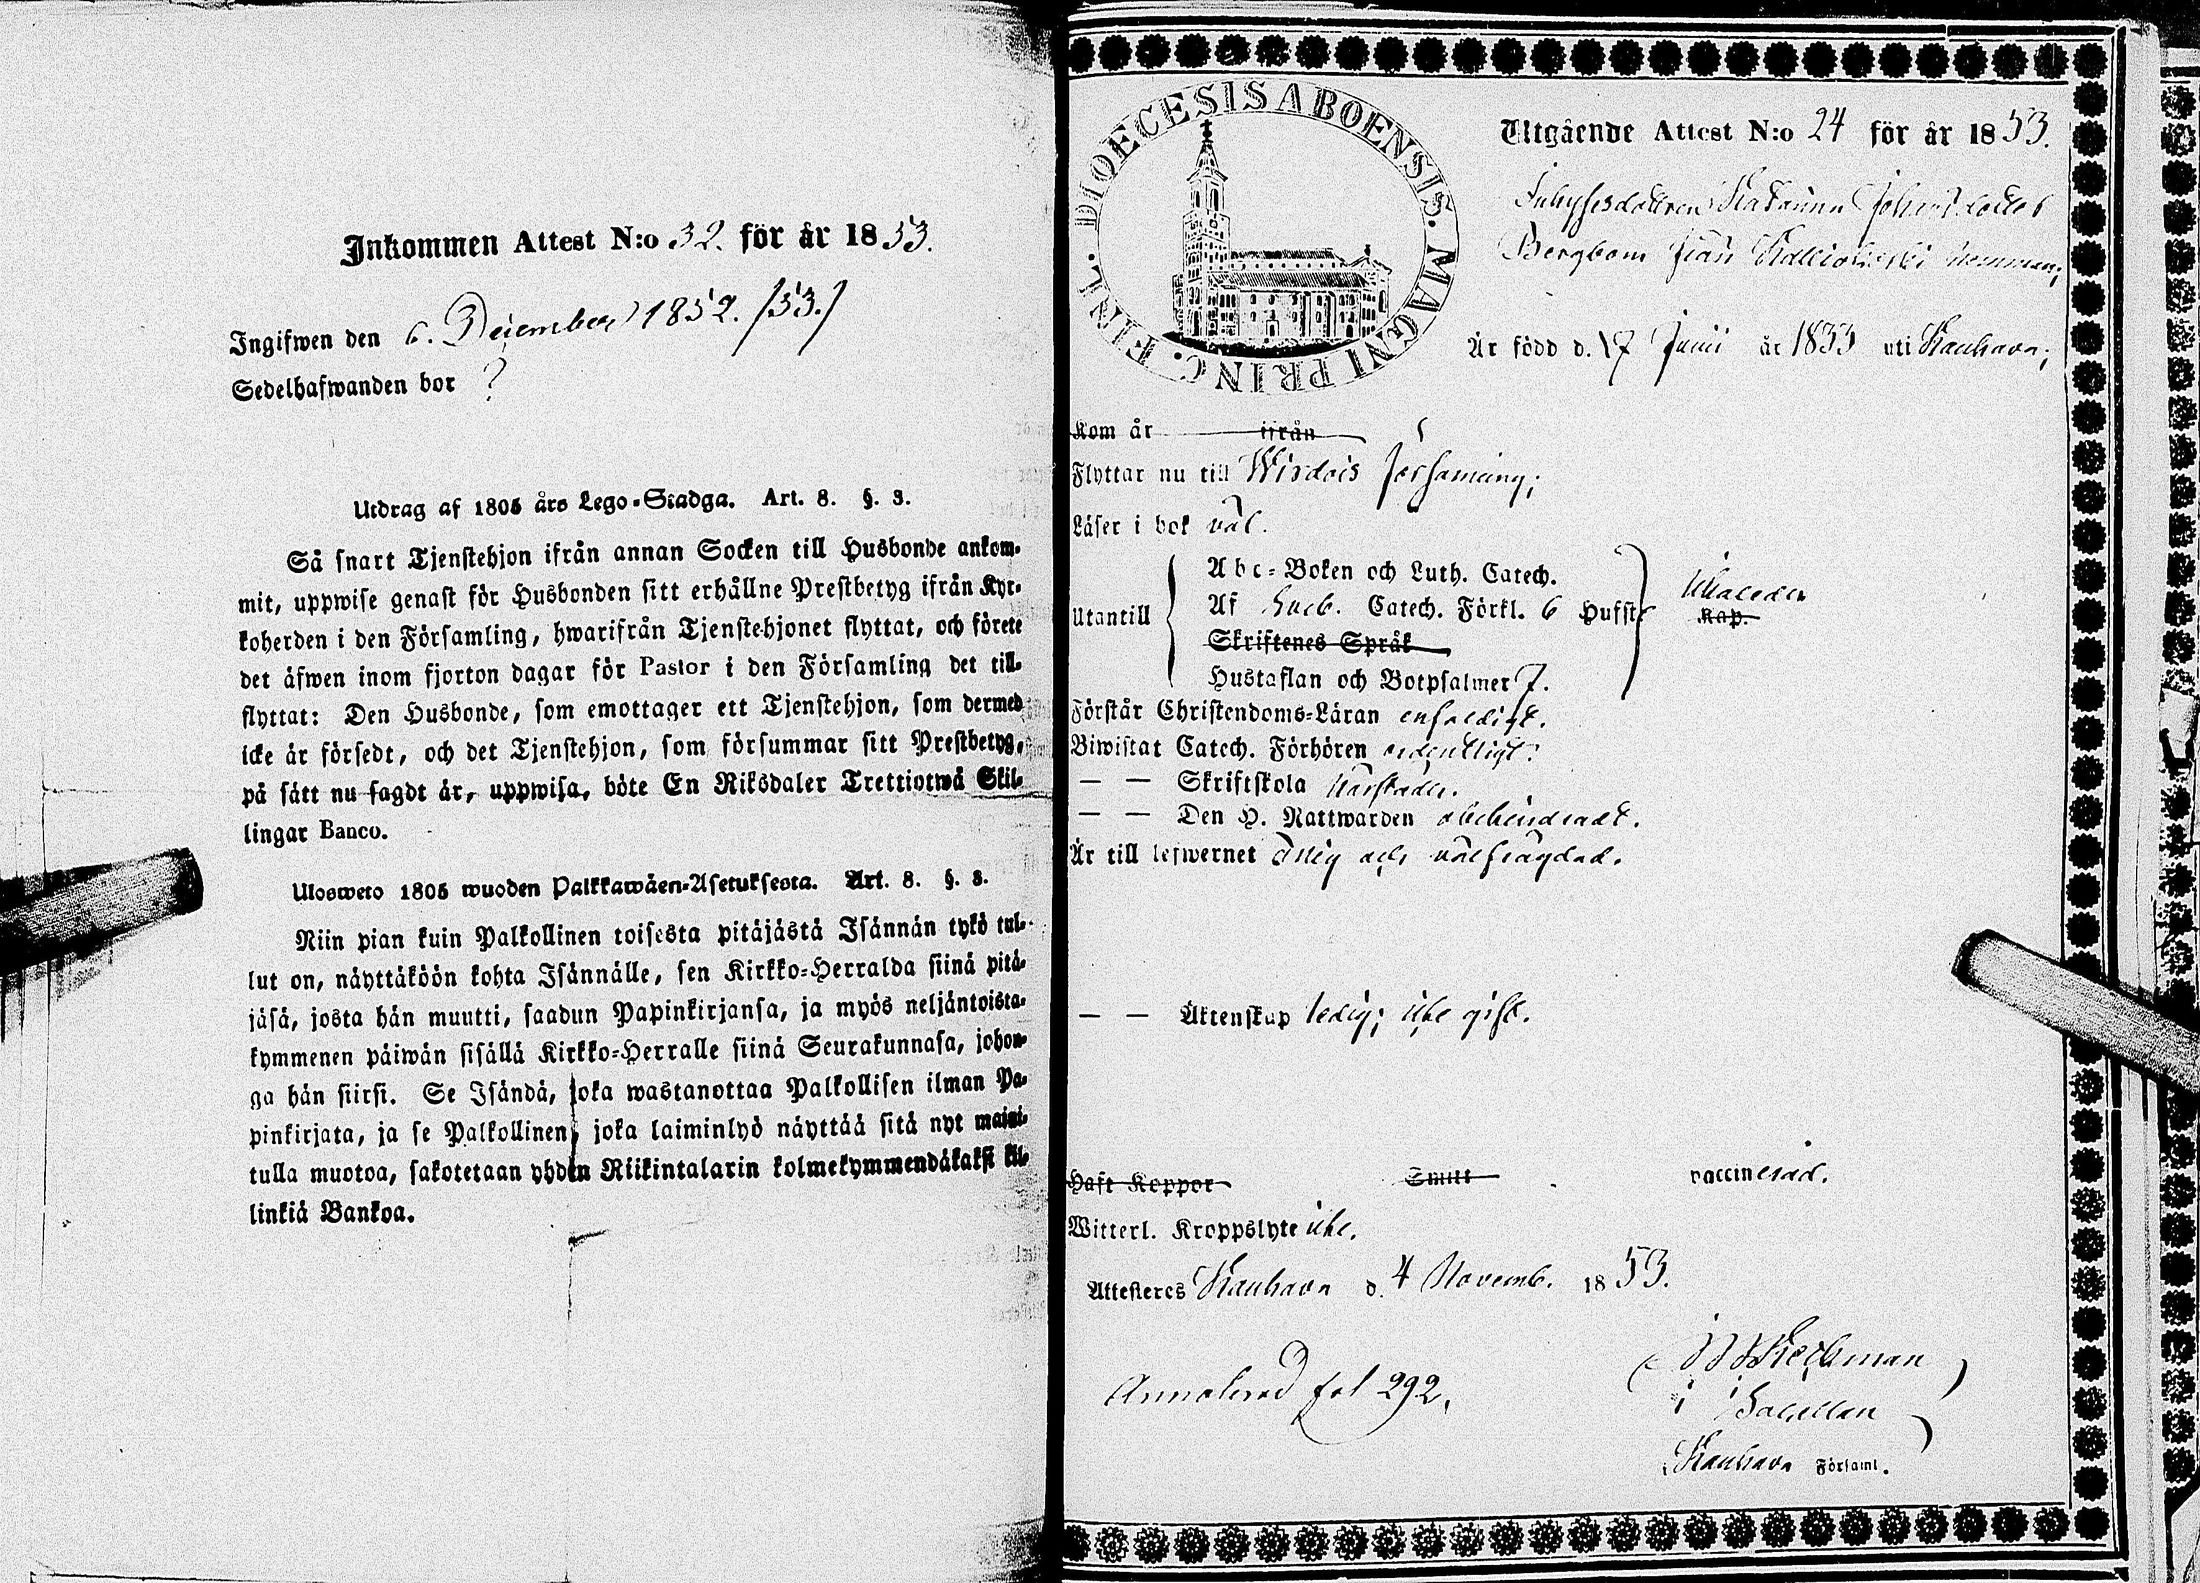 Inkommen Attest N:o 32. för år 1853.
Ingifwen den 6. December 1852. /53./
Sedelhafwanden bor ?
Utdrag af 1805 års Lego-Stadga. Art. 8. §. 3.
Så snart Tjenstehjon ifrån annan Socken till Husbonde ankom-
mit, uppwise genast för Husbonden sitt erhållne Prestbetyg ifrån Kyr-
koherden i den Församling, hwarifrån Tjenstehjonet flyttat, och förete
det äfwen inom fjorton dagar för Pastor i den Församling det till-
flyttat: Den Husbonde, som emottager ett Tjenstehjon, som dermed
icke är försedt, och det Tjenstehjon, som försummar sitt Prestbetyg,
på sätt nu sagdt är, uppwisa, böte En Riksdaler Trettiotwå Skil-
lingar Banco.
Ulosweto 1805 wuoden Palkkawäen-Asetuksesta. Art. 8. §. 3.
Niin pian kuin Palkollinen toisesta pitäjästä Isännän tykö tul-
lut on, näyttäköön kohta Isännälle, sen Kirkko-Herralda siinä pitä-
jäsä, josta hän muutti, saadun Papinkirjansa, ja myös neljäntoista-
kymmenen päiwän sisällä Kirkko-Herralle siinä Seurakunnasa, johon-
ga hän siirsi. Se Isändä, joka wastanottaa Palkollisen ilman Pa-
pinkirjata, ja se Palkollinen, joka laiminlyö näyttää sitä nyt maini-
tulla muotoa, sakotetaan yhden Riikintalarin kolmekymmendäkaksi kil-
linkiä Bankoa.
DIOECESIS ABOENSIS. MAGNI PRINC. FINL.
Utgående Attest N:o 24 för år 1853.
Inhysesdottren Katarina Johansdotter
Bergbom från Kallioloski hemman;
Är född d. 17 Junii år 1833 uti Kauhava;
Kom år ifrån
Flyttar nu till Wirdois församling;
Läser i bok väl.
Utantill
Abc-Boken och Luth. Catech.
Af Sveb. Catech. Förkl. 6 Hufst.
Skriftenes Språk
Hustaflan och Botpsalmer 7.
Kap.
Förstår Christendoms-Läran enfaldigt.
Biwistat Catech. Förhören ordentligt.
— — Skriftskola
— — Den H. Nattwarden obehindradt.
Är till lefwernet ärlig och välfrägdad.
— — Äktenskap ledig; icke gift.
Haft Koppor Smitt vaccinerad.
Witterl. Kroppslyte icke.
Attesteres Kauhava d. 4 Novemb. 1853.
Annoterad fol 292.
Kauhava Församl.